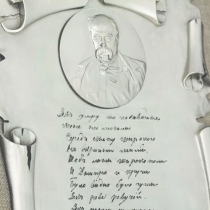 Як умру, то поховайте
Мене на могилі
Серед степу широкого
На Вкраїні милій
Щоб лани широкополі
І Дніпро і кручі
Було видно було чути
Як реве ревучий